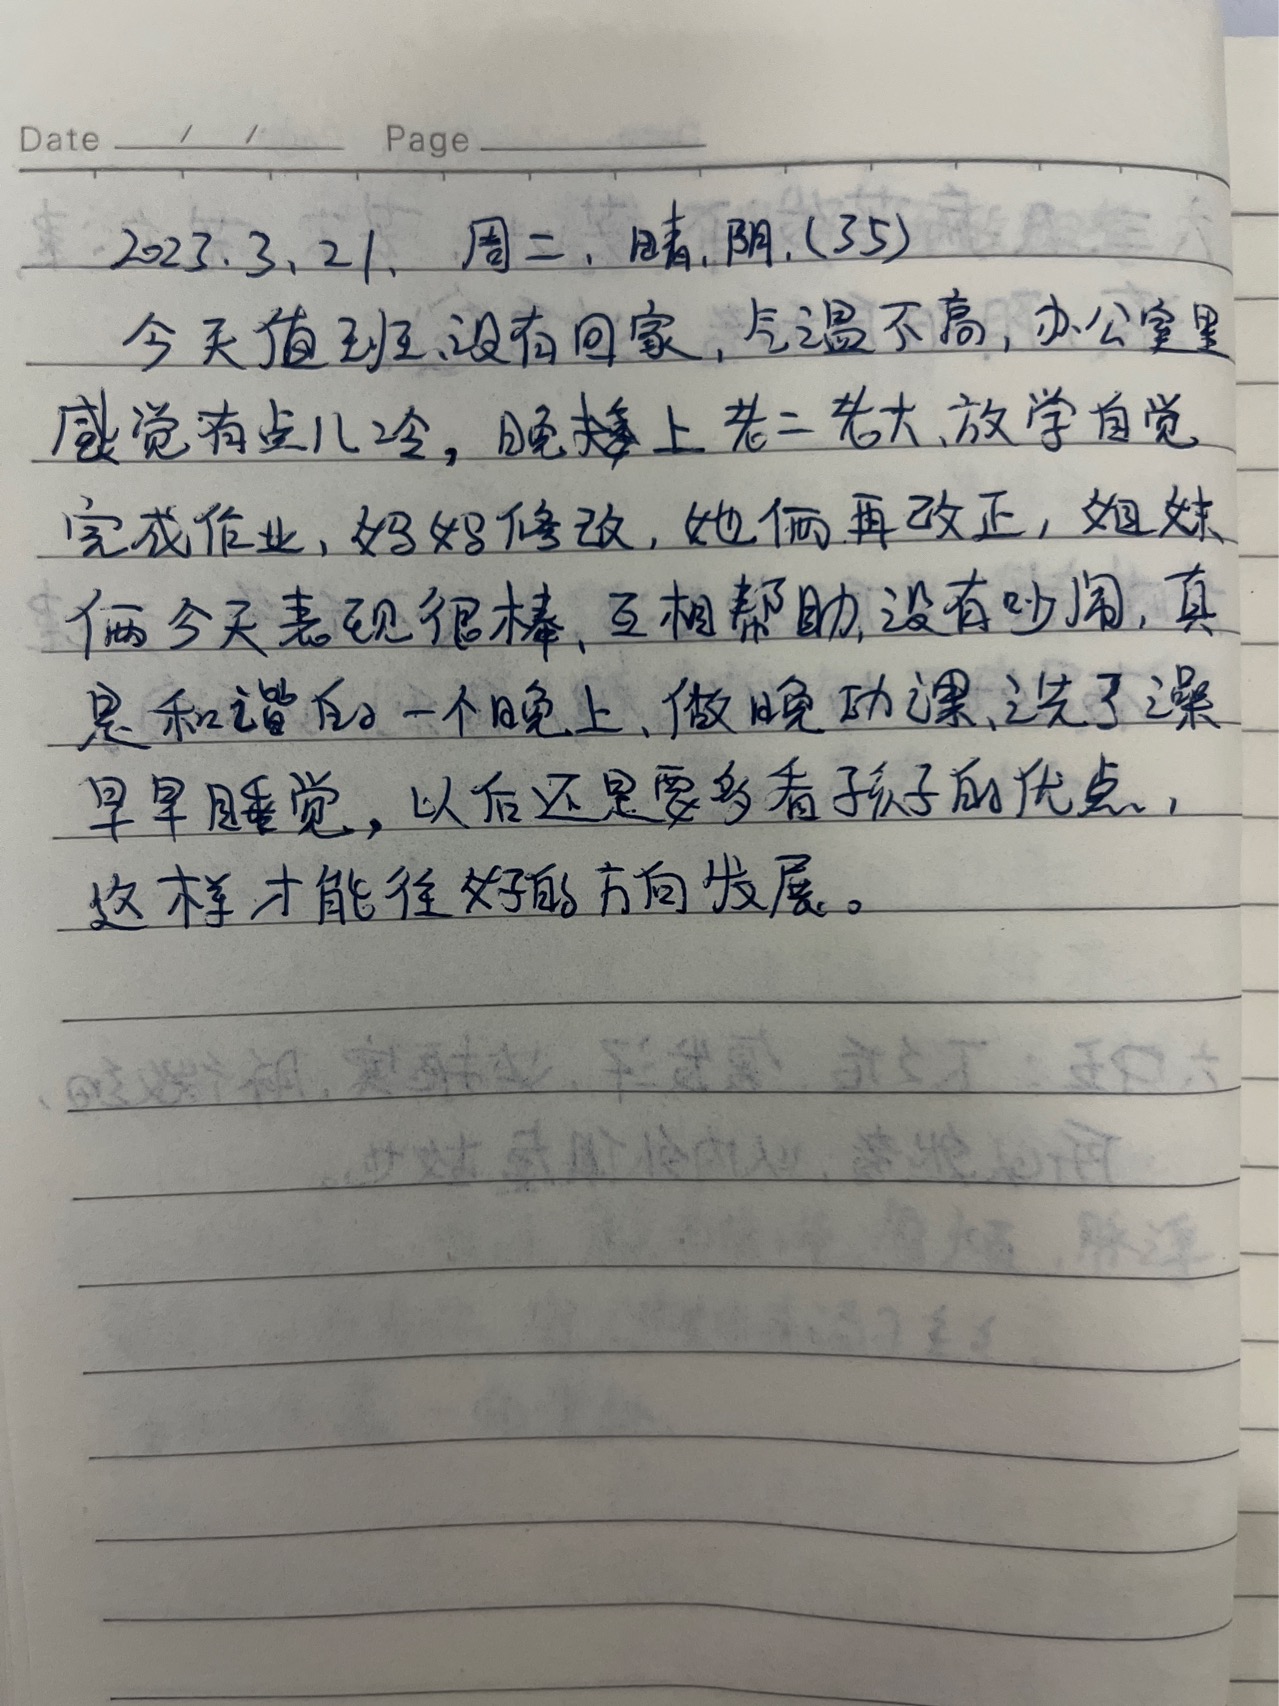 Date / / Page
2023.3.21. 周二、晴,阴.(35)
今天值班、没有回家,气温不高,办公室里
感觉有点儿冷,晚上老二老大、放学自觉
完成作业、妈妈修改,她俩再改正,姐妹
俩今天表现很棒、互相帮助,没有吵闹,真
是和谐的一个晚上、做晚功课、洗了澡
早早睡觉,以后还是要多看孩子的优点,
这样才能往好的方向发展。